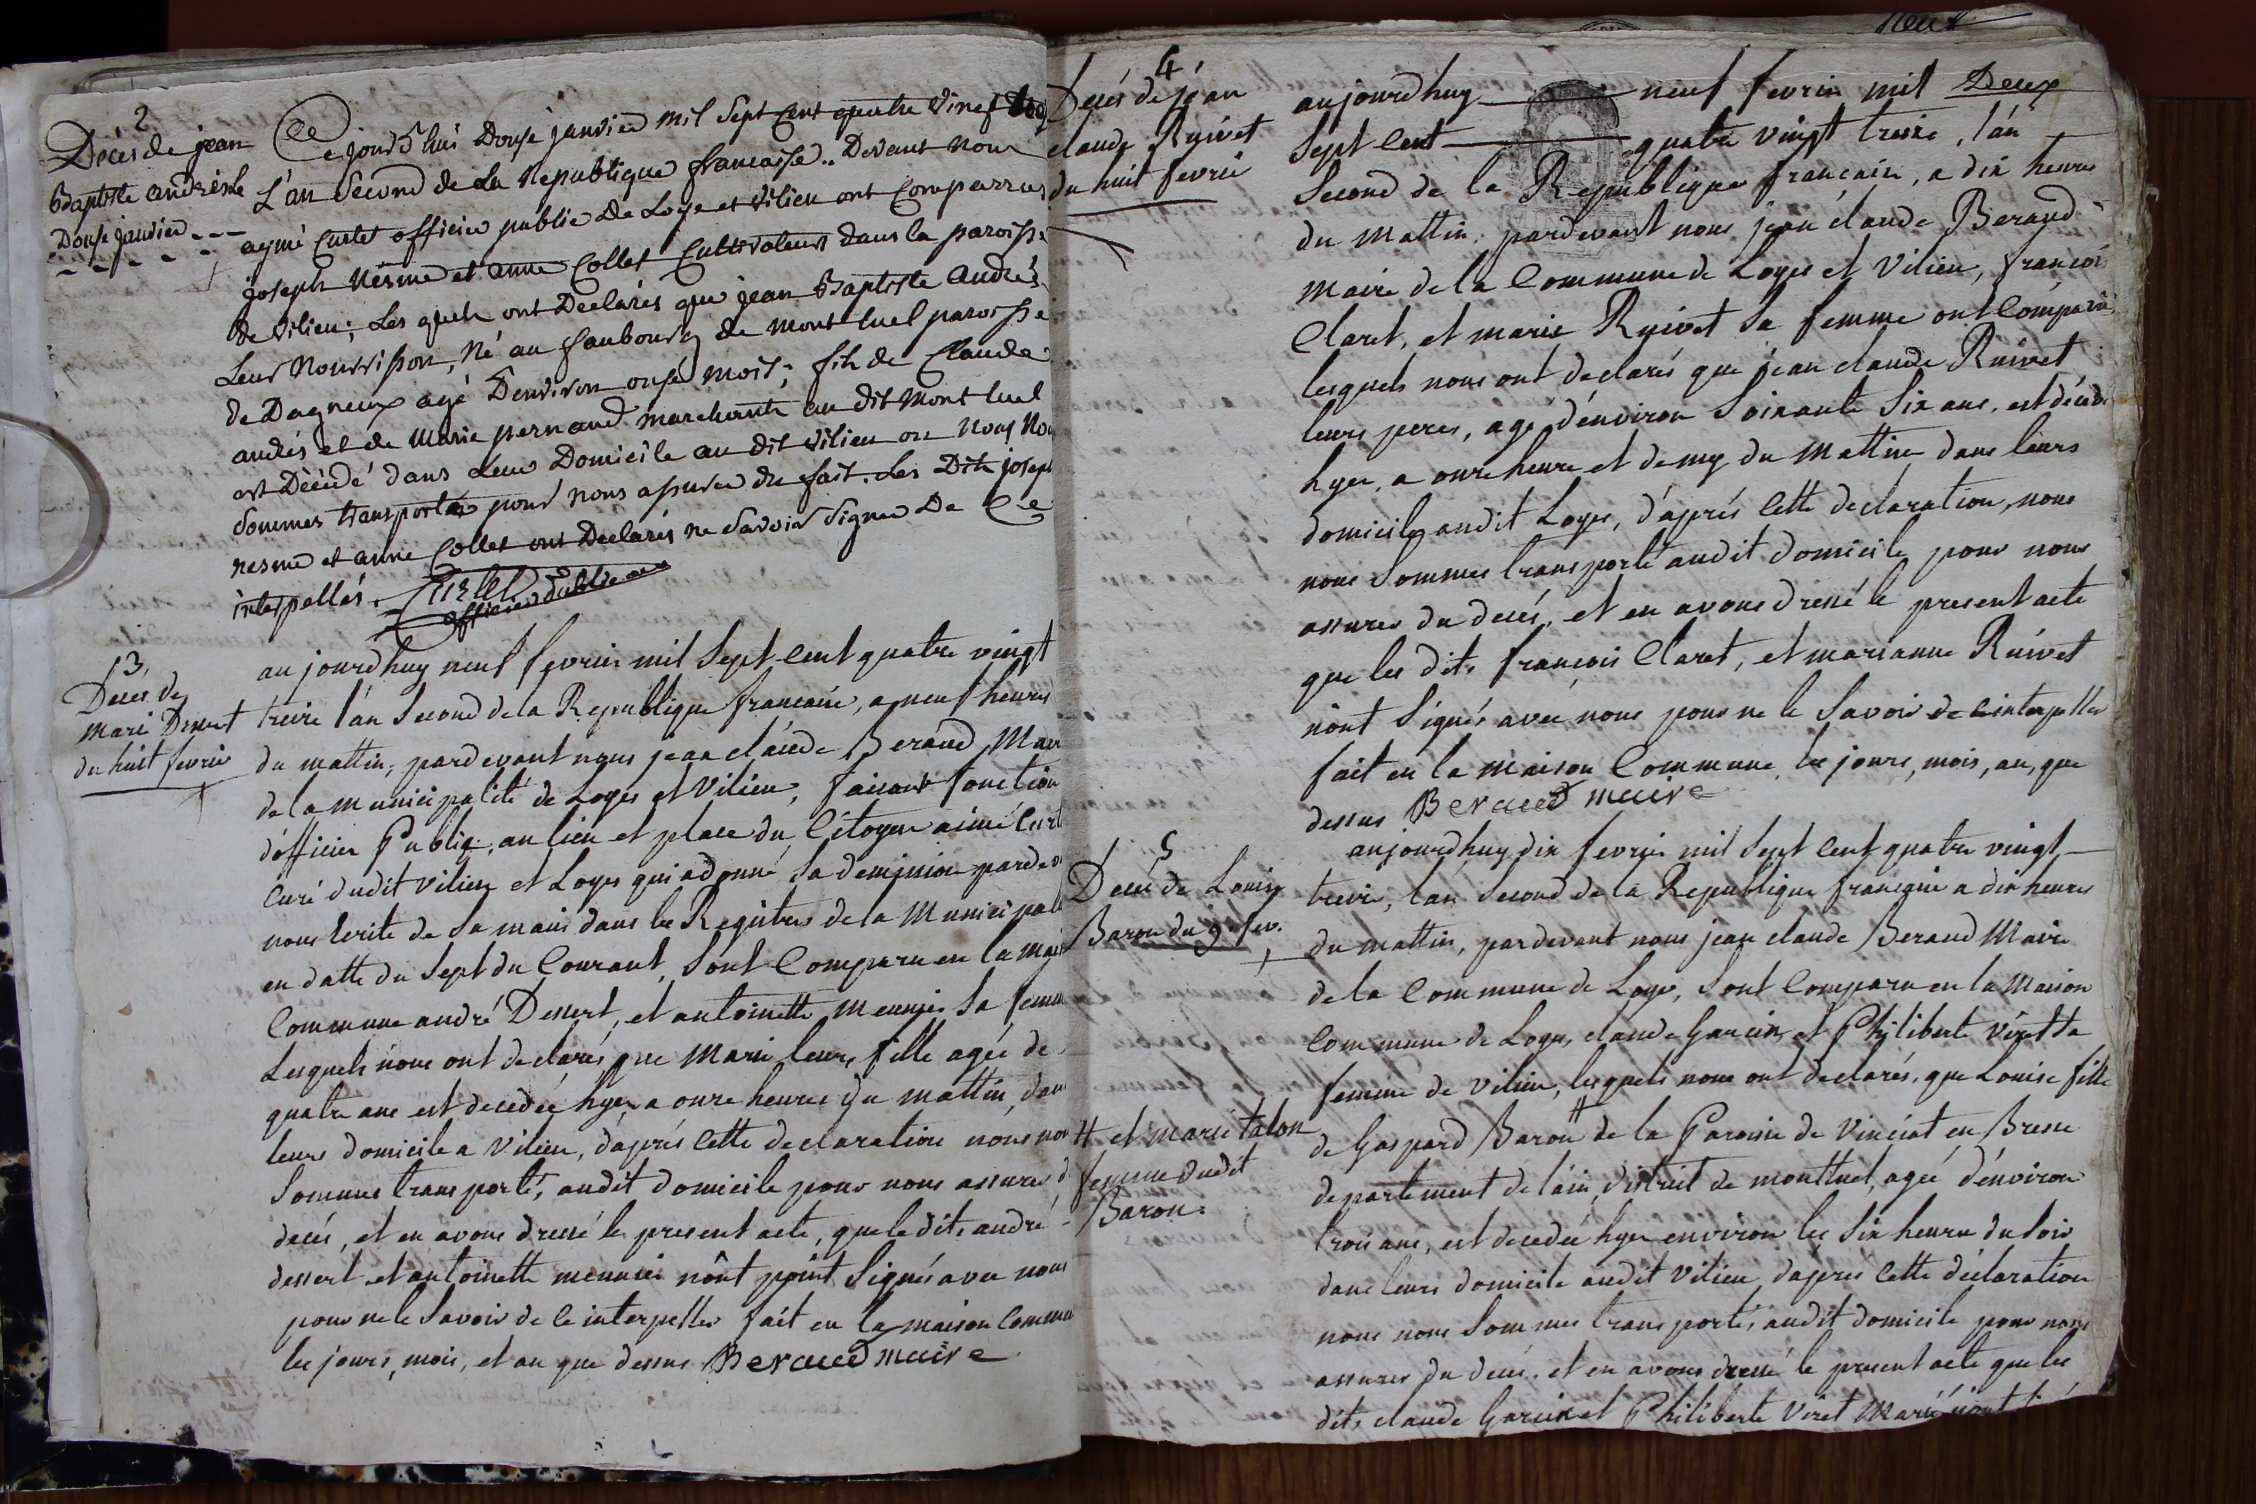 2
Décès de jean
Baptiste andrés le
Douse janvier
Ce jourd'hui Douse janvier mil sept cent quatre vingt
L'an second de La republique francaisse.. Devant nous
aymé Curlet officier public de Loye et Vilieu ont comparrus
joseph Nesme et anne Collet Cultivateurs dans la paroisse
de Vilieu; Les quels ont Declarés que jean Baptiste andrés
Leur Nourrisson, Né au faubourg de Montluel paroisse
de Dagneux agé D'environ onse mois; fils de Claude
andrés et de Marie pernaud marchants au dit Montluel
est Décédé dans Leur Domicile au dit Vilieu ou Nous Nous
sommes transportés pour nous assurer du fait. Les Dits joseph
nesme et anne Collet ont Declarés ne savoir signer De Ce
interpellés. Curlet
officier public
3
Deces de
Marie Dessert
du huit fevrier
aujourdhuy neuf fevrier mil sept cent quatre vingt
treize l'an second de la Republique francaise, a neuf heures
du mattin, pardevant nous jean claude Beraud Maire
de la municipalité de Loyes et Vilieu, faisant fonction
d'officier Public, au lieu et place du Citoyen aimé Curlet
Curé dudit Vilieu et Loyes qui a donné sa demission pardevant
nous ecrite de sa main dans les Registres de la Municipalité
en datte du sept du Courant, sont Comparu en la maison
Commune andré Dessert, et antoinette Meunier sa femme
Lesquels nous ont declarés que Marie leurs fille agée de
quatre ans est decedée hyer a onze heures du mattin, dans
leurs domicile a Vilieu, d'aprés cette declaration nous nous
sommes transporté, audit domicile pour nous assurer du
decés, et en avons dressé le present acte, que le dits andré
dessert et antoinette meunier n'ont point signés avec nous
pour ne le savoir de ce interpellés fait en la maison commune
les jours, mois, et an que dessus Beraud maire
4
Decés de jean
claude Ruivet
du huit fevrier
aujourdhuy neuf fevrier mil Deux
sept cent quatre vingt treize, l'an
second de la Republique francaise, a dix heures
du mattin, pardevant nous jean claude Beraud
Maire de la Commune de Loyes et Vilieu, françois
Claret, et marie Ruivet sa femme ont Comparu,
lesquels nous ont declarés que jean claude Ruivet
leurs peres, agé d'environ soixante six ans, est décédé
hyer, a onze heure et demy du mattin dans leurs
domicile audit Loyes, d'aprés cette declaration, nous
nous sommes transporté audit domicile pour nous
assurer du decés, et en avons dressé le present acte
que les dits françois Claret, et marianne Ruivet
n'ont signés avec nous pour ne le savoir de ce interpellés
fait en la maison Commune, les jours, mois, an, que
dessus Beraud maire
5
Decès de Louise
Baron du 9e fev.
aujourdhuy dix fevrier mil sept cent quatre vingt
treize, l'an second de la Republique française a dix heures
du mattin, pardevant nous jean claude Beraud Maire
de la Commune de Loyes, sont Comparu en la Maison
Commune de Loyes, claude Garcin, et Philiberte Viret sa
femme de Vilieu, lesquels nous ont declarés, que Louise fille
de Gaspard Baron # de la Paroisse de Vinciat en Bresse
departement de l'ain, district de montluel, agée d'environ
trois ans, est decedée hyer environ les six heures du soir
dans leurs domicile audit Vilieu, d'apres cette déclaration
nous nous sommes transportés audit domicile pour nous
assurer du decés, et en avons dressé le present acte que les
dits claude Garcin et Philiberte Viret mariés n'ont
# et marie talon
femme dudit
Baron.